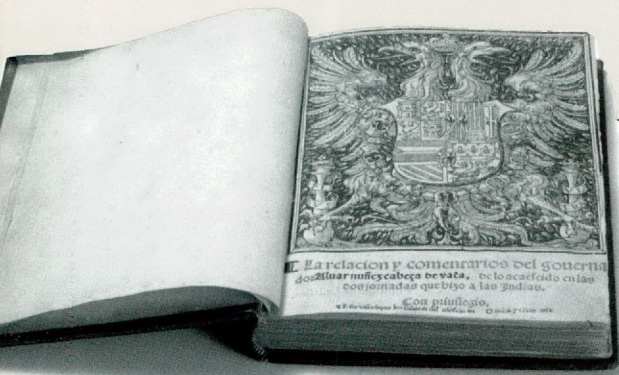 La relacion y comentarios del gouerna
dor Aluar nuñez cabeça de vaca, de lo acaescido en las
dos jornadas que hizo a las Indias.
Con priuilegio.